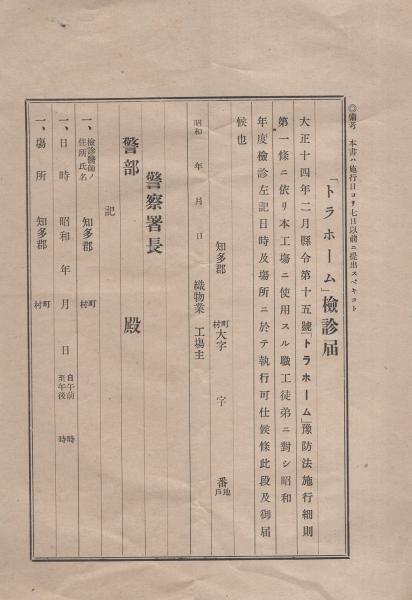 ◎備考 本書ハ施行日ヨリ七日以前ニ提出スベキコト
「トラホーム」檢診届
大正十四年二月縣令第十五號「トラホーム」豫防法施行細則
第一條ニ依リ本工場ニ使用スル職工徒弟ニ對シ昭和
年度檢診左記日時及場所ニ於テ執行可仕候條此段及御届
候也
知多郡 町村 大字 字 番 地戸
昭和 年 月 日 織物業 工場主
警察署長
警部 殿
記
一、檢診醫師ノ住所氏名 知多郡 町村
一、日時 昭和 年 月 日 自午前 時 至午後 時
一、場所 知多郡 町村